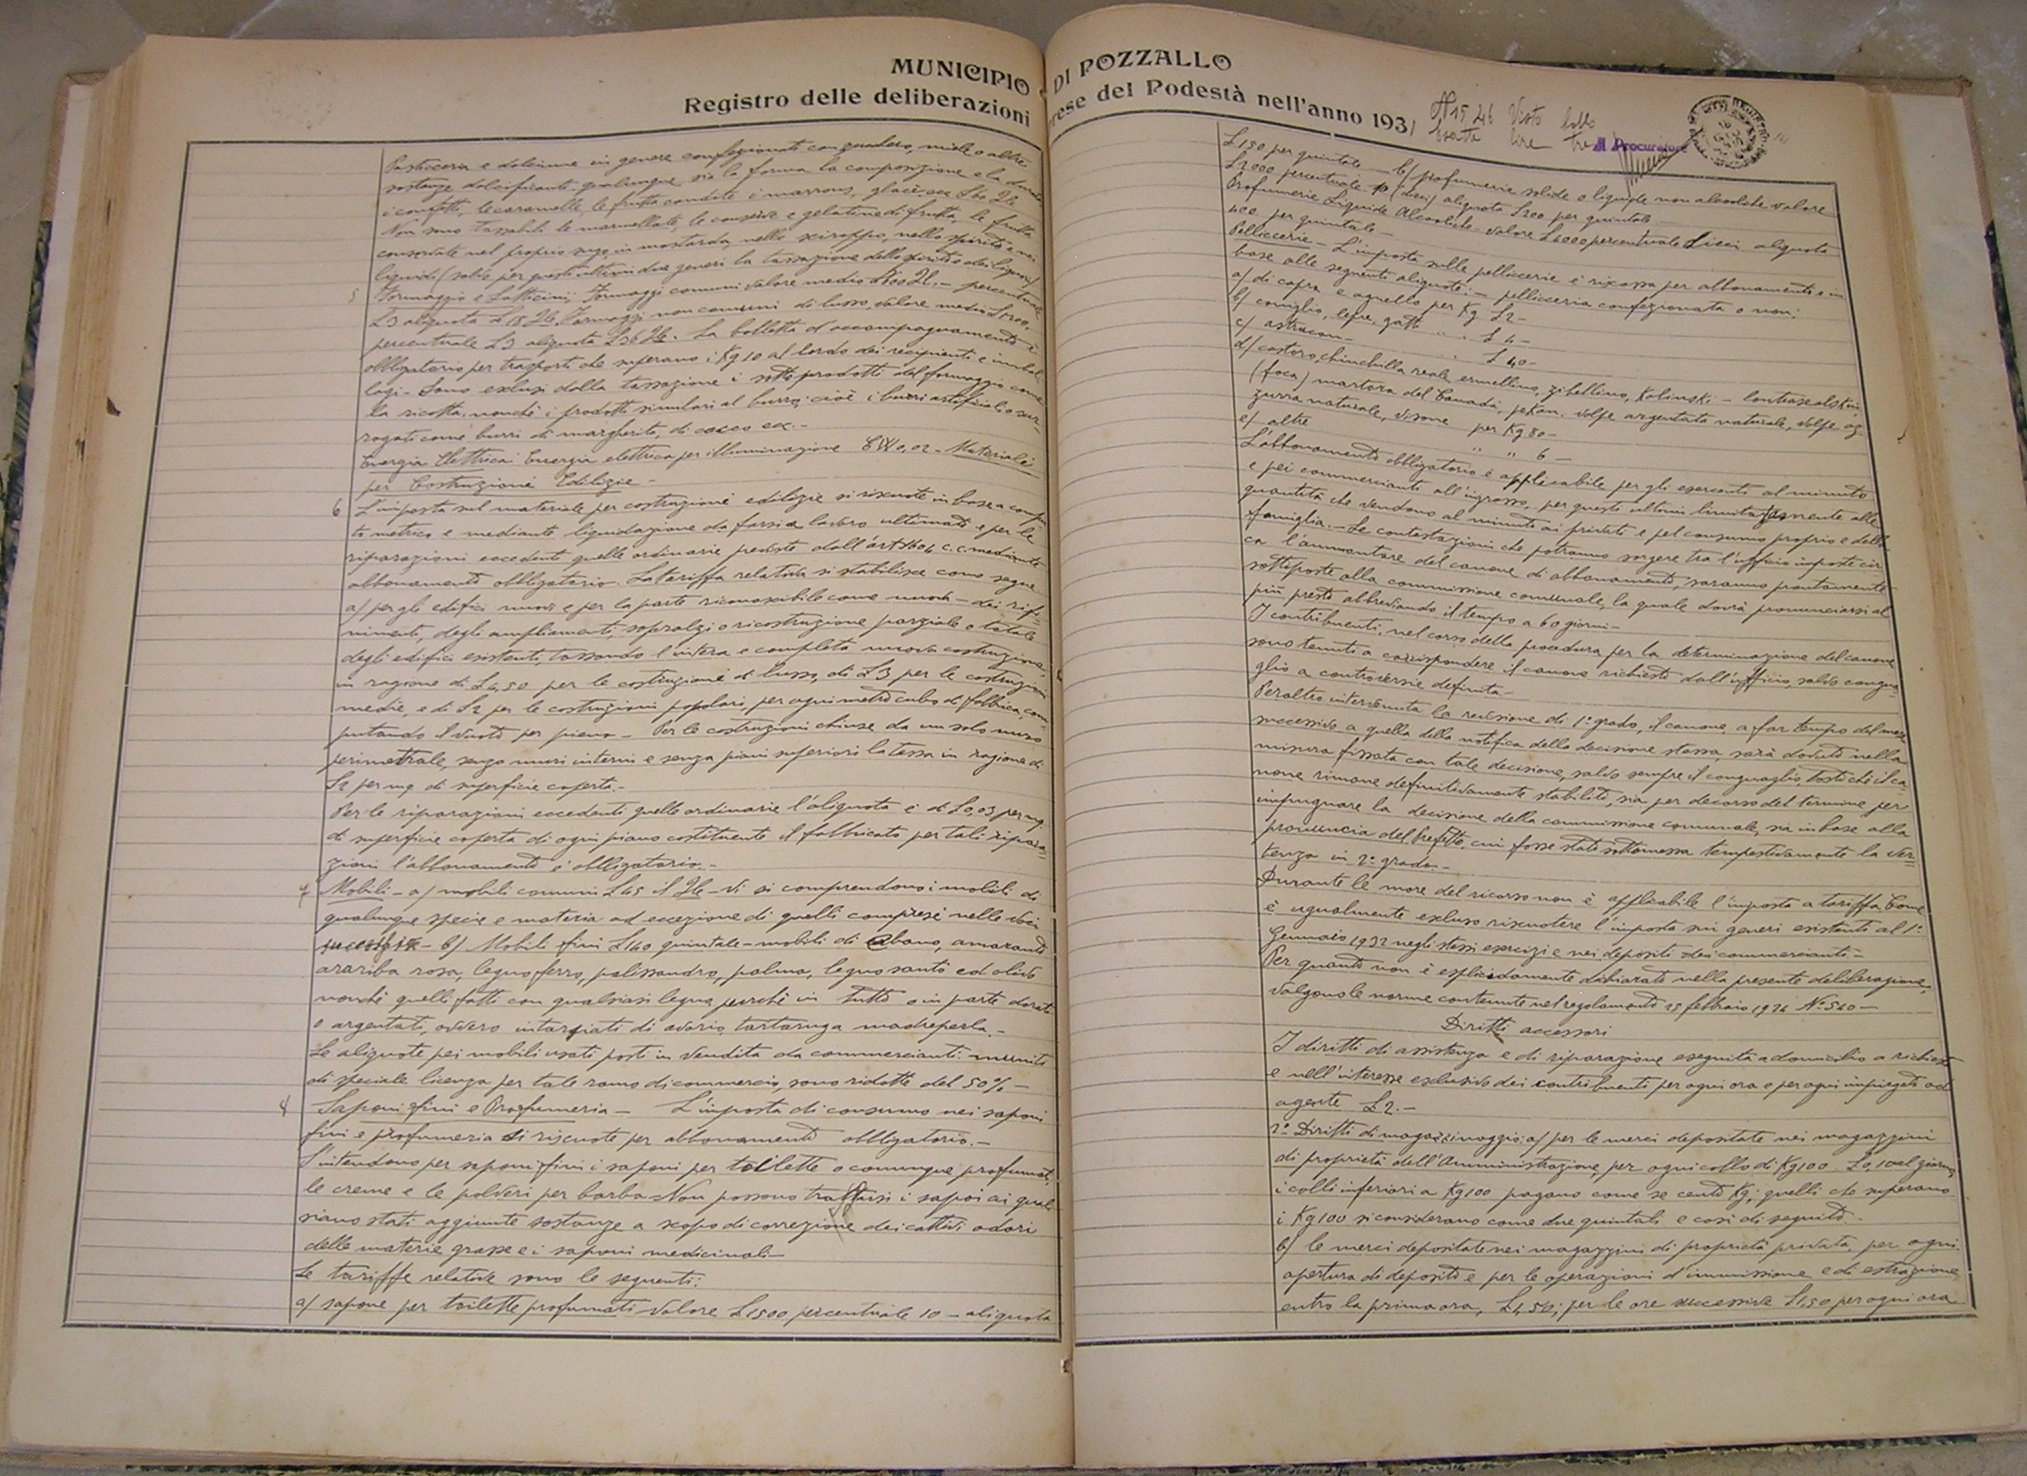 MUNICIPIO DI POZZALLO
Registro delle deliberazioni prese del Podestà nell'anno 1931
Visto
lire tre Il Procuratore
Pasticceria e dolciume in genere confezionati con zucchero, miele o altre
sostanze dolcificanti qualunque sia la forma la composizione e la
i confetti, le caramelle, le frutta candite i marrons, glacès ecc £60 Ql
Non sono tassabili le marmellate, le conserve e gelatine di frutta, le frutta
conservate nel proprio sugo, in mostarda, nello sciroppo, nello spirito e nei
liquidi (salvo per questi ultimi due generi la tassazione dello spirito e dei liquori)
5 Formaggio e Latticini; Formaggi comuni valore medio £600 Ql. - percentuale
£3 aliquota £18 Ql. Formaggi non comuni di lusso, valore medio £1200,
percentuale £3 aliquota £36 Ql. La bolletta d'accompagnamento è
obbligatorio per trasporti che superano i Kg 10 al lordo dei recipienti e imbal
lagi - Sono esclusi dalla tassazione i sotto prodotti del formaggio come
la ricotta, nonchè i prodotti similari al burro, cioè i burri artificiali o sur
rogati come burri di margherita, di cocco ecc. -
Energia Elettrica: Energia elettrica per illuminazione 0,02 - Materiali
per Costruzioni Edilizie -
6 L'imposta sul materiale per costruzioni edilizie si riscuote in base a compu
to metrico e mediante liquidazione da farsi a lavoro ultimato e per le
riparazioni eccedenti quelle ordinarie previste dall'art 1604 c.c. mediante
abbonamento obbligatorio. La tariffa relativa si stabilisce come segue
a) per gli edifici nuovi e per la parte riconoscibile come nuova - dei rifi
nimenti, degli ampliamenti, sopralzi o ricostruzione parziale o totale
degli edifici esistenti, tassando l'intera e completa nuova costruzione,
in ragione di £4,50 per le costruzioni di lusso, di £3 per le costruzioni
medie, e di £2 per le costruzioni popolari, per ogni metro cubo di fabbrica, com
putando il vuoto per pieno - Per le costruzioni chiuse da un solo muro
perimetrale, senza muri interni e senza piani superiori la tassa in ragione di
£2 per mq. di superficie coperta. -
Per le riparazioni eccedenti quelle ordinarie l'aliquota è di £0,03 per mq.
di superficie coperta di ogni piano costituente il fabbricato per tali ripara=
zioni l'abbonamento è obbligatorio. -
7 Mobili - a) mobili comuni £45 il Ql - Vi si comprendono i mobili di
qualunque specie e materia ad eccezione di quelli compresi nelle voci
successive - b) Mobili fini £140 quintale - mobili di ebano, amaranto
arariba rosa, legno ferro, palissandro, palma, legno santo ed olivo
nonchè quelli fatti con qualsiasi legno purchè in tutto o in parte dorati
o argentati, ovvero intarsiati di avorio, tartaruga madreperla. -
Le aliquote pei mobili usati posti in vendita da commercianti muniti
di speciale licenza per tale ramo di commercio, sono ridotte del 50% -
8 Saponi fini e Profumeria - L'imposta di consumo nei saponi
fini e profumeria si riscuote per abbonamento obbligatorio. -
S'intendono per saponi fini i saponi per toilette o comunque profumati,
le creme e le polveri per barba - Non possono tassarsi i sapoi ai quali
siano stati aggiunte sostanze a scopo di correzione dei cattivi odori
delle materie grasse e i saponi medicinali -
Le tariffe relative sono le seguenti:
a) sapone per toilette profumati valore £1500 percentuale 10 - aliquota
£150 per quintale - b) profumerie solide o liquide non alcooliche valore
£2000 percentuale 10 (dieci) aliquota £200 per quintale -
Profumerie Liquide Alcooliche - valore £4000 percentuale Dieci aliquota
400 per quintale -
Pelliccerie - L'imposta sulle pelliccerie è riscossa per abbonamento e in
base alle seguenti aliquote: - pellicceria confezionata o non:
a) di capra e agnello per Kg £2 -
b) coniglio, lepre, gatto " " £ 4 -
c) astracan - " £ 40 -
d) castoro, chinchilla reale, ermellino, zibellino, Kolinski - lontra sealskin
(foca) martora del Canadà, pekan, volpe argentata naturale, volpe az=
zurra naturale, visone per Kg 80 -
e) altre " " 6 -
L'abbonamento obbligatorio è applicabile per gli esercenti al minuto
e pei commercianti all'ingrosso, per questi ultimi limitatamente alle
quantità che vendono al minuto ai privati e pel consumo proprio e della
famiglia. - Le contestazioni che potranno sorgere tra l'ufficio imposte cir
ca l'ammontare del canone di abbonamento, saranno prontamente
sottoposte alla commissione comunale, la quale dovrà pronunciarsi al
più presto abbreviando il tempo a 60 giorni -
I contribuenti, nel corso della procedura per la determinazione del canone
sono tenuti a corrispondere il canone richiesto dall'ufficio, salvo congua=
glio a controversie definita. -
Peraltro intervenuta la decisione di 1° grado, il canone a far tempo del mese
successivo a quella della notifica della decisione stessa, sarà dovuto nella
misura fissata con tale decisione, salvo sempre il conguaglio, tosto chè il ca
none rimane definitivamente stabilito, sia per decorso del termine per
impugnare la decisione della commissione comunale, sia in base alla
pronuncia del Prefetto, cui fosse stata sottomessa tempestivamente la ver=
tenza in 2° grado. -
Durante le more del ricorso non è applicabile l'imposta a tariffa. Come
è ugualmente escluso riscuotere l'imposta sui generi esistenti al 1°
Gennaio 1932 negli stessi esercizi e nei depositi dei commercianti. -
Per quanto non è esplicidamente dichiarato nella presente deliberazione,
valgono le norme contenute nel regolamento 25 febbraio 1924 N° 540 -
Diritti accessori
I diritti di assistenza e di riparazione eseguita a domicilio a richiesta
e nell'interesse esclusivo dei contribuenti per ogni ora e per ogni impiegato od
agente £2. -
2° Diritti di magazzinaggio: a) per le merci depositate nei magazzini
di proprietà dell'Amministrazione, per ogni collo di Kg 100 £0,10 al giorno
i colli inferiori a Kg 100 pagano come se cento Kg; quelli che superano
i Kg 100 si considerano come due quintali e così di seguito -
b) le merci depositate nei magazzini di proprietà privata, per ogni
apertura di deposito e per le operazioni d'immissione e di estrazione
entro la prima ora, £4,50; per le ore successive £1,50 per ogni ora